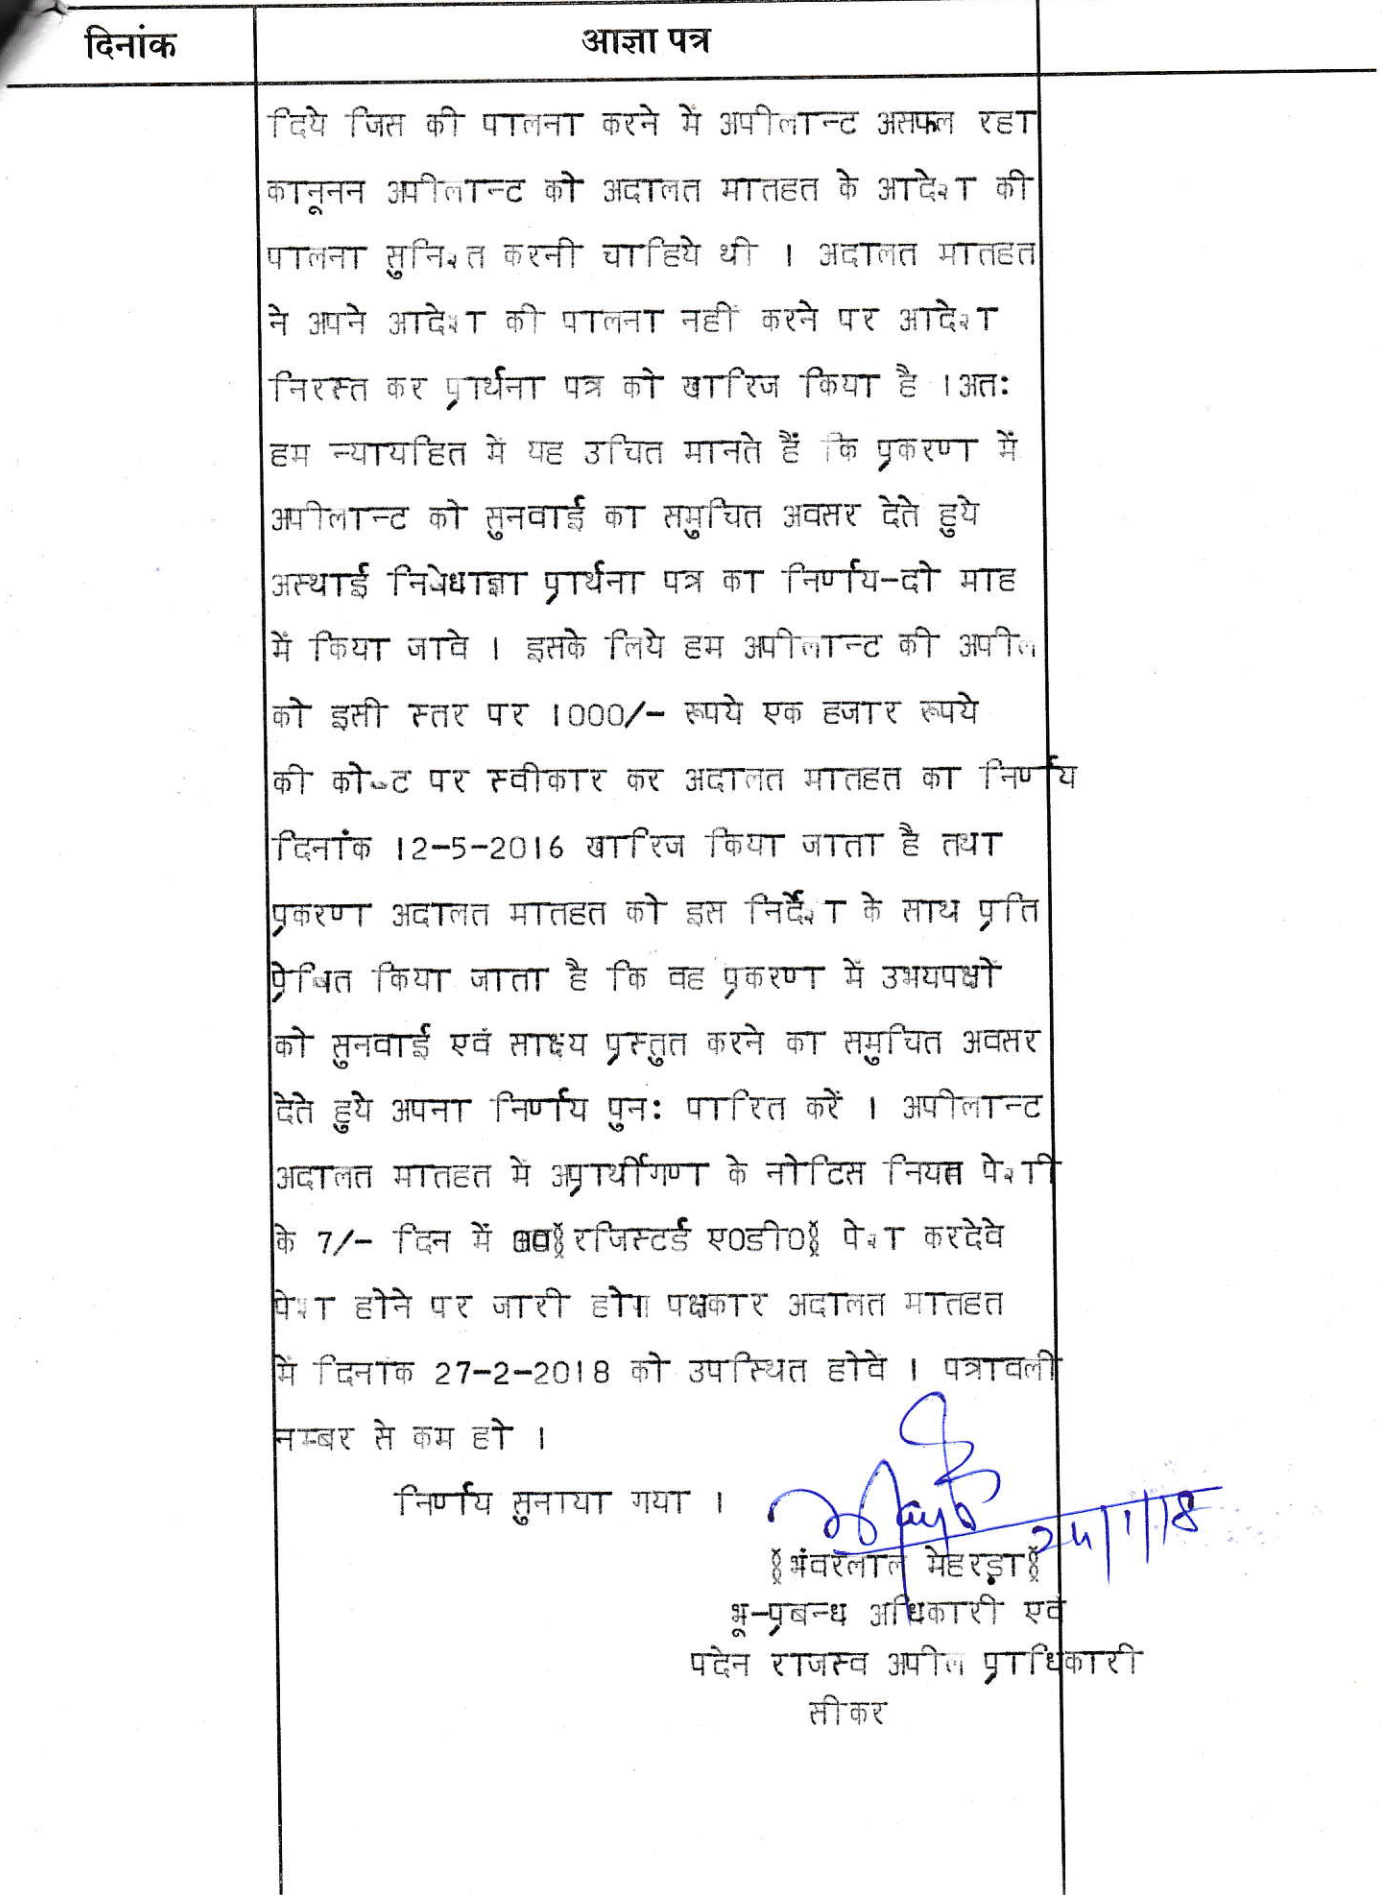 दिनांक
आज्ञा पत्र
दिये जिस की पालना करने में अपीलान्ट असफल रहा
कानूनन अपीलान्ट को अदालत मातहत के आदेश की
पालना सुनिश्त करनी चाहिये थी । अदालत मातहत
ने अपने आदेश की पालना नहीं करने पर आदेश
निरस्त कर प्रार्थना पत्र को खारिज किया है ।अतः
हम न्यायहित में यह उचित मानते हैं कि प्रकरण में
अपीलान्ट को सुनवाई का समुचित अवसर देते हुये
अस्थाई निषेधाज्ञा प्रार्थना पत्र का निर्णय-दो माह
में किया जावे । इसके लिये हम अपीलान्ट की अपील
को इसी स्तर पर 1000/- रूपये एक हजार रूपये
की कोष्ट पर स्वीकार कर अदालत मातहत का निर्णय
दिनांक 12-5-2016 खारिज किया जाता है तथा
प्रकरण अदालत मातहत को इस निर्देश के साथ प्रति
प्रेषित किया जाता है कि वह प्रकरण में उभयपक्षों
को सुनवाई एवं साक्ष्य प्रस्तुत करने का समुचित अवसर
देते हुये अपना निर्णय पुनः पारित करें । अपीलान्ट
अदालत मातहत में अप्रार्थीगण के नोटिस नियत पेशी
के 7/- दिन में (रजिस्टर्ड ए0डी0) पेश करदेवे
पेश होने पर जारी होगा पक्षकार अदालत मातहत
में दिनांक 27-2-2018 को उपस्थित होवे । पत्रावली
नम्बर से कम हो ।
निर्णय सुनाया गया ।
24/1/18
(भंवरलाल मेहरड़ा)
भू-प्रबन्ध अधिकारी एवं
पदेन राजस्व अपील प्राधिकारी
सीकर